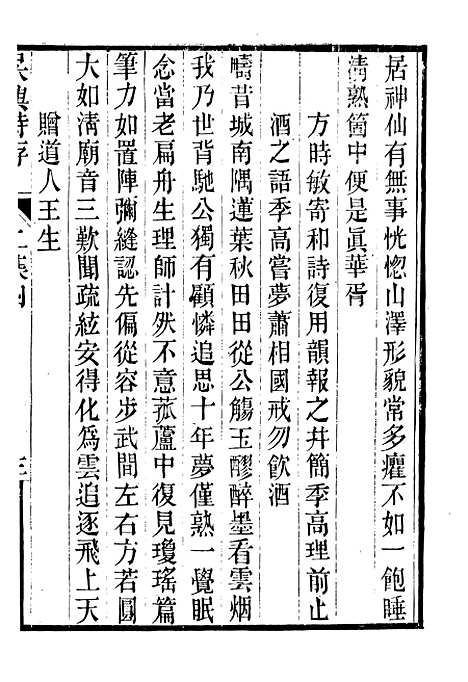 居神仙有無事恍惚山澤形貌常多癯不如一飽睡
淸熟箇中便是眞華胥
方時敏寄和詩復用韻報之幷簡季高理前止
酒之語季高嘗夢蕭相國戒勿飮酒
疇昔城南隅蓮葉秋田田從公觴玉醪醉墨看雲烟
我乃世背馳公獨有顧憐追思十年夢僅熟一覺眠
念當老扁舟生理師計然不意菰蘆中復見瓊瑤篇
筆力如置陣彌縫認先偏從容步武間左右方若圓
大如淸廟音三歎聞疏絃安得化爲雲追逐飛上天
贈道人王生
吳興詩存 二集四 三